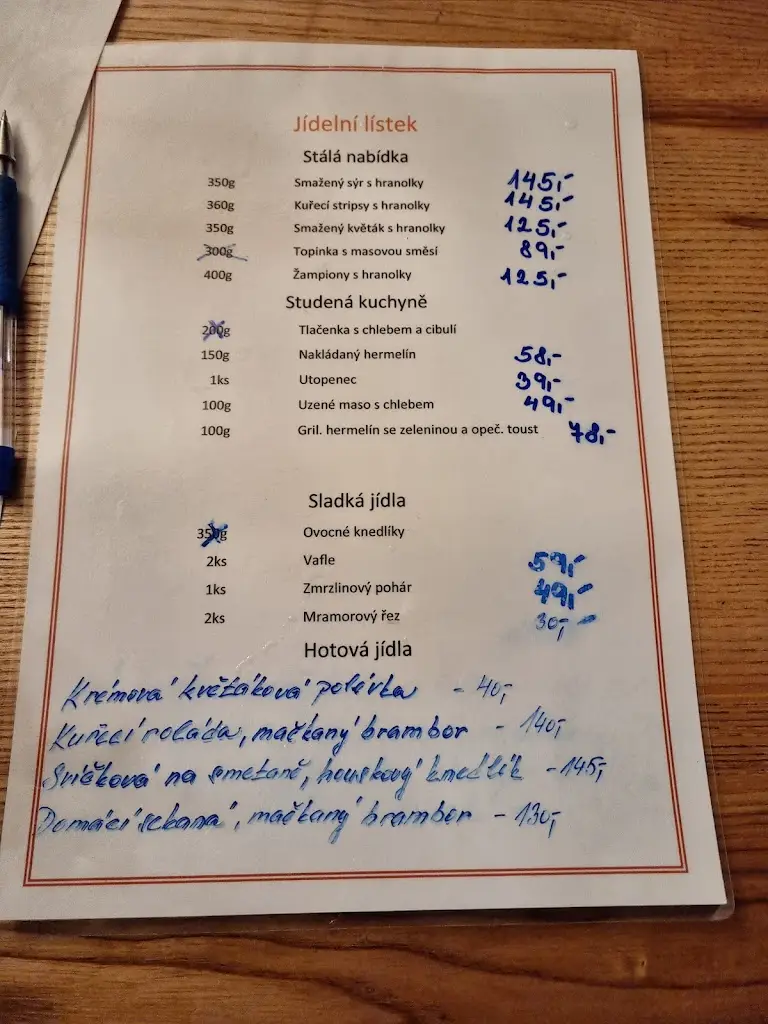 Jídelní lístek
Stálá nabídka
350g Smažený sýr s hranolky 145,-
360g Kuřecí stripsy s hranolky 145,-
350g Smažený květák s hranolky 125,-
300g Topinka s masovou směsí 89,-
400g Žampiony s hranolky 125,-
Studená kuchyně
200g Tlačenka s chlebem a cibulí
150g Nakládaný hermelín 58,-
1ks Utopenec 39,-
100g Uzené maso s chlebem 49,-
100g Gril. hermelín se zeleninou a opeč. toust 78,-
Sladká jídla
350g Ovocné knedlíky
2ks Vafle 59,-
1ks Zmrzlinový pohár 49,-
2ks Mramorový řez 30,-
Hotová jídla
Krémová květáková polévka - 40,-
Kuřecí roláda, mačkaný brambor - 140,-
Svíčková na smetaně, houskový knedlík - 145,-
Domácí sekaná, mačkaný brambor - 130,-